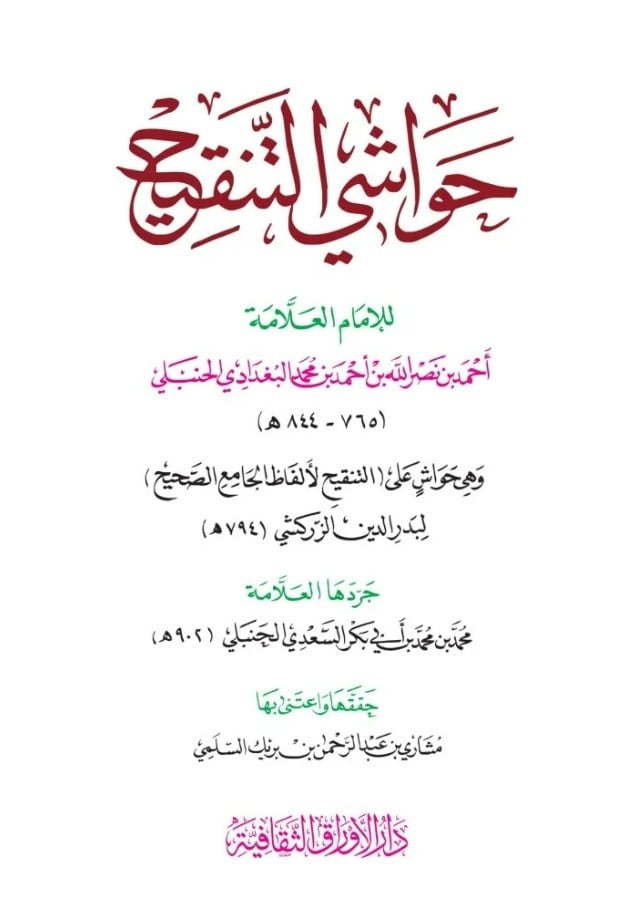 حَوَاشِي التَّنقِيح
للإمَام العَلَّامَة
أَحْمَد بن نَصْر الله بن أحْمَد بن مُحمَّد البُغدَادِي الحَنبَلي
(٧٦٥ - ٨٤٤ هـ)
وَهِي حَوَاشٍ عَلَى (التنقيح لألفَاظ الجَامِع الصَّحِيح)
لِبَدرِ الدين الزّركشي (٧٩٤هـ)
جَرَّدهَا العَلَّامَة
محمَّد بن محمَّد بن أَبي بَكر السَّعدِي الحَنبَلي (٩٠٢هـ)
حَقَّقهَا وَاعتَنى بهَا
مشَاري بن عَبد الرَّحمن بن بريك السّلَمِي
دَار الأَورَاق الثَّقَافِيَّة